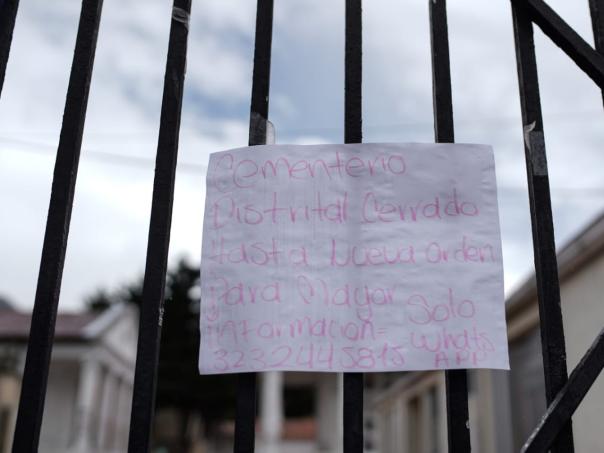 Cementerio
Distrital Cerrado
Hasta Nueva orden
Para Mayor Solo
informacion= Whats
3232445815 APP